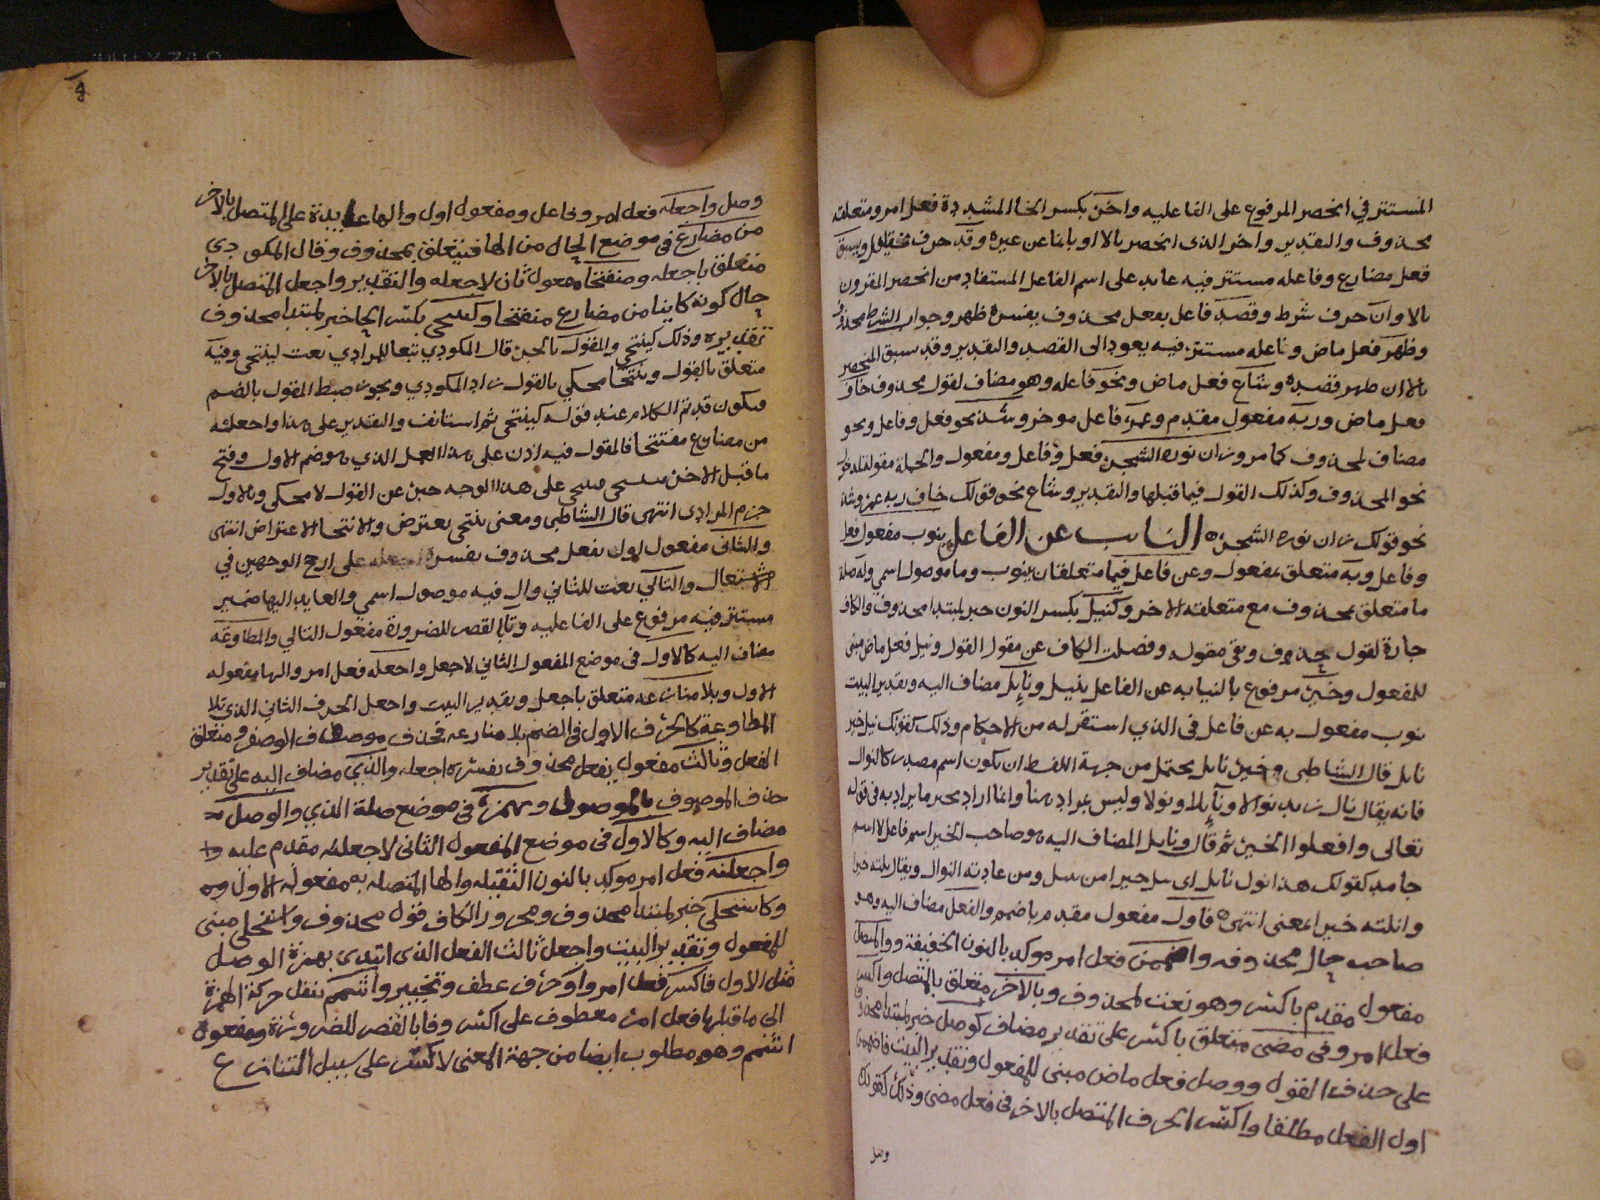 المستتر في انحصر المرفوع على الفاعليه واخر بكسر الخا المشددة فعل امر ومتعلقه
محذوف والتقدير واخر الذي انحصر بالا او بانما عن غيره وقد حرف تقليل ويسبق
فعل مضارع وفاعله مستتر فيه عايد على اسم الفاعل المستفاد من انحصر المقرون
بالا وان حرف شرط وقصد فاعل بفعل محذوف يفسره ظهر وجواب الشرط محذوف
وظهر فعل ماض وفاعله مستتر فيه يعود الى القصد والتقدير وقد يسبق المنحصر
بالا ان ظهر قصده وشاع فعل ماض ونحو فاعله وهو مضاف لقول محذوف خاف
فعل ماض وربه مفعول مقدم وعمر فاعل موخر وشذ نحو فعل وفاعل ونحو
مضاف لمحذوف كما مر وزان نوره الشجر فعل وفاعل ومفعول والجملة مقولة لمدخول
نحو المحذوف وكذلك القول فيما قبلها والتقدير وشاع نحو قولك خاف ربه عمر وشذ
نحو قولك زان نوره الشجر ه النايب عن الفاعل ينوب مفعول فعل
وفاعل وبه متعلق بمفعول وعن فاعل فيما متعلقان بينوب وما موصول اسمي وله صلة
ما متعلق بمحذوف مع متعلقه الاخر وكنيل بكسر النون خبر لمبتدا محذوف والكاف
جارة لقول محذوف وبقي مقوله وفصلت الكاف عن مقول القول ونيل فعل ماض مبني
للمفعول وخير مرفوع بالنيابه عن الفاعل بنيل ونايل مضاف اليه وتقدير البيت
ينوب مفعول به عن فاعل في الذي استقر له من الاحكام وذلك كقولك نيل خير
نايل قال الشاطبي وخير نايل يحتمل من جهة اللفظ ان يكون اسم مصدر كالنوال
فانه يقال نال زيد نوالا ونايلا ونولا وليس بمراد هنا وانما اراد بخير ما يراد به في قوله
تعالى وافعلوا الخير ثم قال ونايل المضاف اليه هو صاحب الخير اسم فاعل لا اسم
جامد كقولك هذا نول نايل اي نيل خيرا من نيل ومن عادته النوال ويقال نلته خيرا
وانلته خيرا المعنى انتهى ه فاول مفعول مقدم باضمم والفعل مضاف اليه وهو
صاحب حال محذوفه واضممن فعل امر موكد بالنون الخفيفة ووالمتصل
مفعول مقدم باكسر وهو نعت لمحذوف وبالاخر متعلق بالمتصل واكسر
فعل امر وفي مضى متعلق باكسر على تقدير مضاف كوصل خبر لمبتدا محذوف
على حذف القول ووصل فعل ماض مبني للمفعول وتقدير البيت فاضممن
اول الفعل مطلقا واكسر الحرف المتصل بالاخر في فعل مضى وذلك كقولك
وصل
وصل واجعله فعل امر وفاعل ومفعول اول والها عايدة على المتصل بالاخر
من مضارع في موضع الحال من الها فيتعلق بمحذوف وقال المكودي
متعلق باجعله ومنفتحا مفعول ثان لاجعله والتقدير واجعل المتصل بالاخر
حال كونه كاينا من مضارع منفتحا وكينتحي بكسر الحا خبر لمبتدا محذوف
تقديره وذلك كينتحي والمقول بالجر قال المكودي تبعا للمرادي نعت لينتحي وفيه
متعلق بالمقول وينتحى محكي بالقول زاد المكودي ويجوز ضبط المقول بالضم
فيكون قد تم الكلام عند قوله كينتحي ثم استانف والتقدير على هذا واجعلنه
من مضارع مفتتحا فالمقول فيه اذن على هذا العمل الذي هو ضم الاول وفتح
ما قبل الاخر ينتحي فينتحى على هذا الوجه خبر عن القول لا محكي وبالاول
جزم المرادي انتهى قال الشاطبي ومعنى ينتحي يعترض والانتحا الاعتراض انتهى
والثاني مفعول اول بفعل محذوف يفسره اجعله على ارجح الوجهين في
الاشتغال والتالي نعت للثاني وال فيه موصول اسمي والعايد اليها ضمير
مستتر فيه مرفوع على الفاعليه وتا بالقصر للضرورة مفعول التالي والمطاوعه
مضاف اليه كالاول في موضع المفعول الثاني لاجعل واجعله فعل امر والها مفعوله
الاول وبلا منازعه متعلق باجعل وتقدير البيت واجعل الحرف الثاني الذي تلا
المطاوعة كالحرف الاول في الضم بلا منازعه فحذف موصوف الوصف ومتعلق
الفعل وثالث مفعول بفعل محذوف يفسره اجعله والذي مضاف اليه على تقدير
حذف الموصوف بالموصول وبهمزة في موضع صلة الذي والوصل
مضاف اليه وكالاول في موضع المفعول الثاني لاجعلنه مقدم عليه
واجعلنه فعل امر موكد بالنون الثقيله والها المتصله به مفعوله الاول
وكاستحلي خبر لمبتدا محذوف ومجرور الكاف قول محذوف واستحلي مبني
للمفعول وتقدير البيت واجعل ثالث الفعل الذي ابتدي بهمزة الوصل
مثل الاول فاكسر فعل امر واو حرف عطف وتخيير واشمم بنقل حركة الهمزة
الى ما قبلها فعل امر معطوف على اكسر وفا بالقصر للضرورة ومفعول
اشمم وهو مطلوب ايضا من جهة المعنى لاكسر على سبيل التنازع